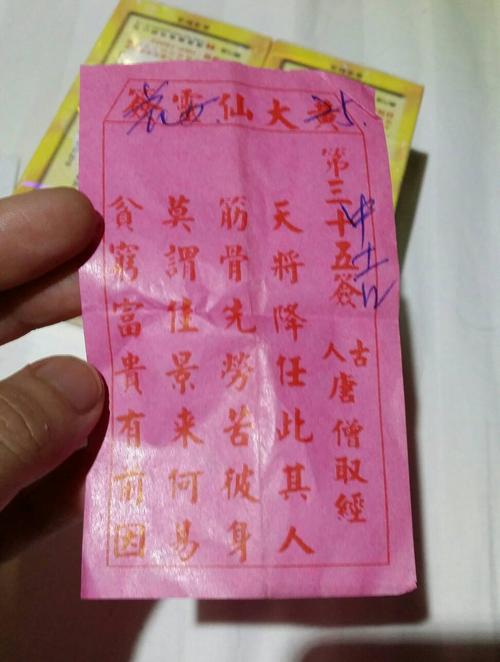 黃大仙靈簽
35.
第三十五簽
中吉
古人唐僧取經
天將降任此其人
筋骨先勞苦彼身
莫謂佳景来何易
貧窮富貴有前因